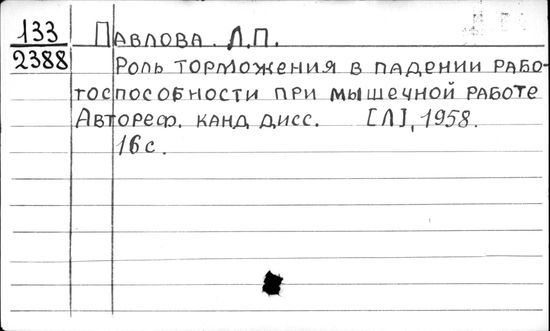 133
2388
Павлова Л.П.
Роль торможения в падении рабо-
тоспособности при мышечной работе
Автореф. канд дисс. [Л], 1958.
16 с.